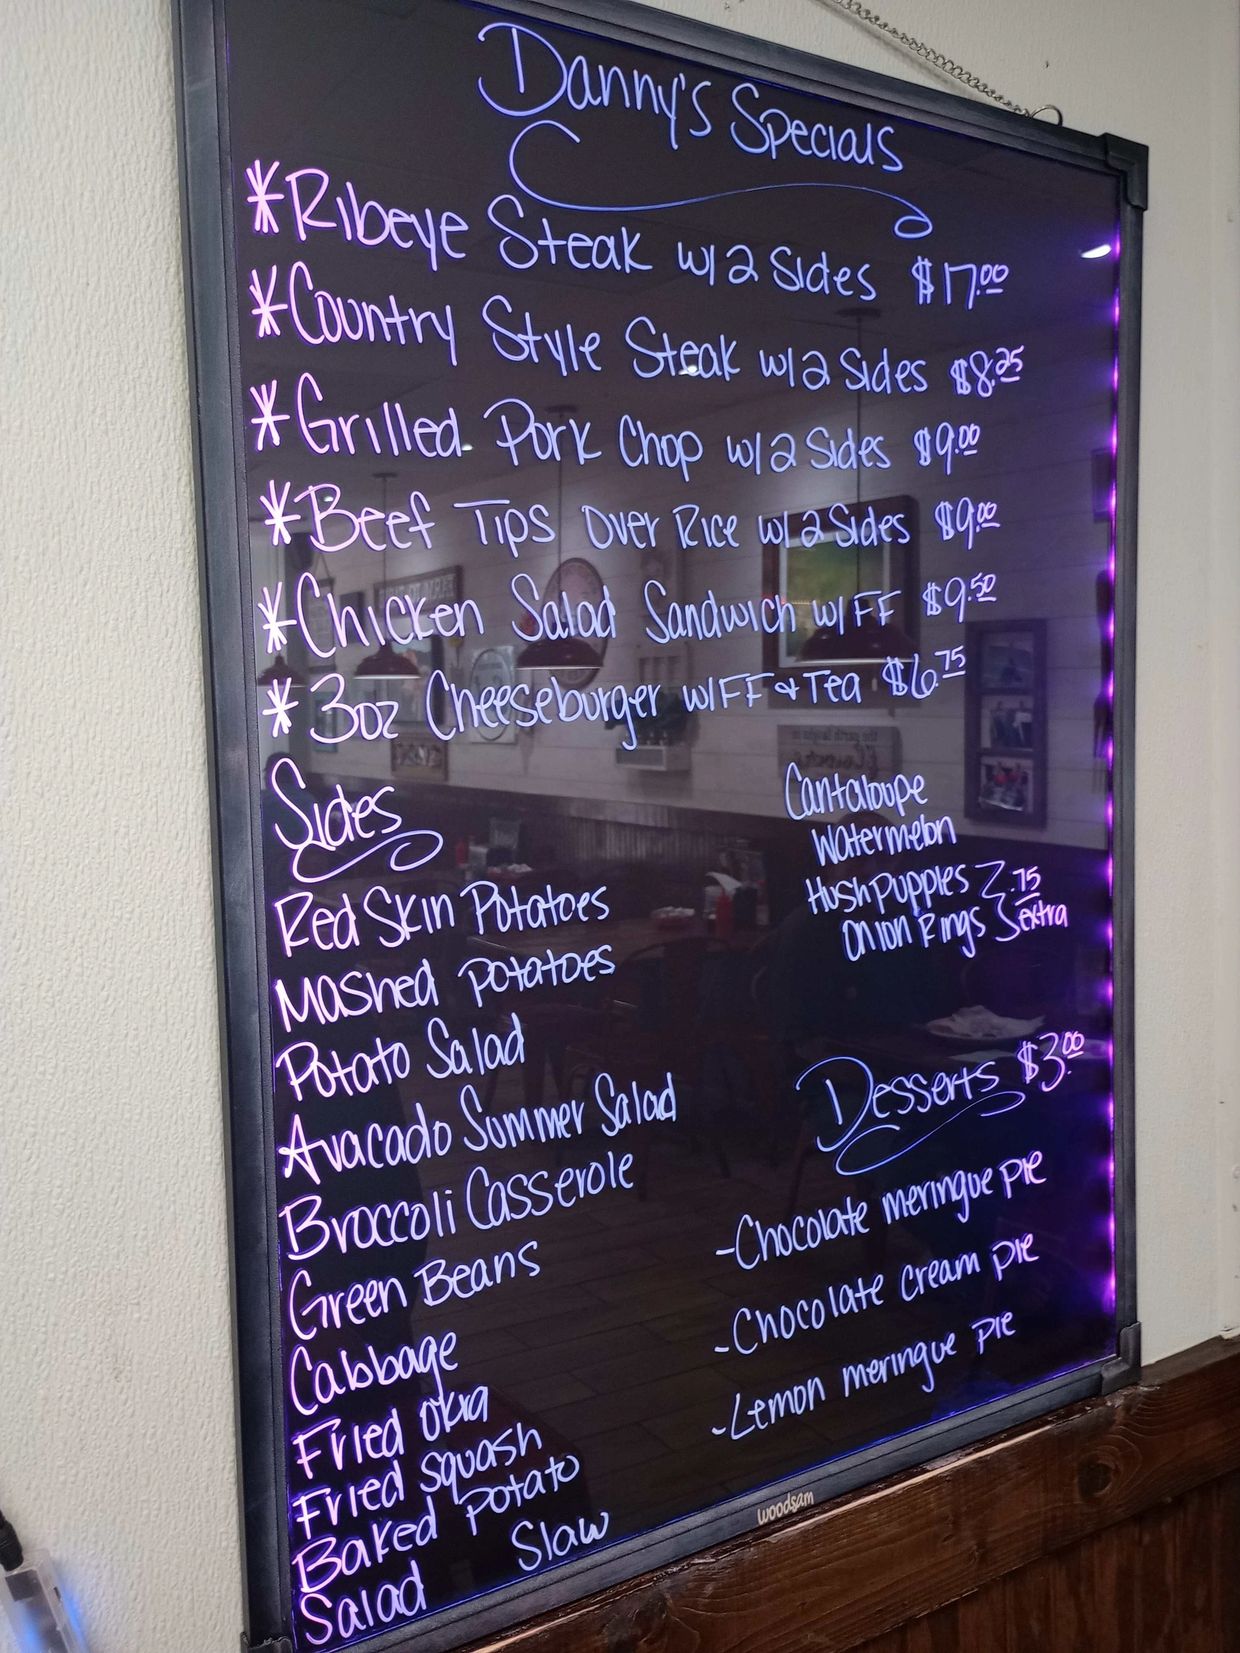 Danny's Specials
*Ribeye Steak w/2 Sides $17.00
*Country Style Steak w/2 Sides $8.25
*Grilled Pork Chop w/2 Sides $9.00
*Beef Tips Over Rice w/2 Sides $9.00
*Chicken Salad Sandwich w/FF $9.50
*3oz Cheeseburger w/FF & Tea $6.75
Sides
Red Skin Potatoes
Mashed Potatoes
Potato Salad
Avacado Summer Salad
Broccoli Casserole
Green Beans
Cabbage
Fried Okra
Fried Squash
Baked Potato
Salad Slaw
Cantaloupe
Watermelon
Hushpuppies } .75
Onion Rings } extra
Desserts $3.00
-Chocolate meringue pie
-Chocolate cream pie
-Lemon meringue pie
woodsam